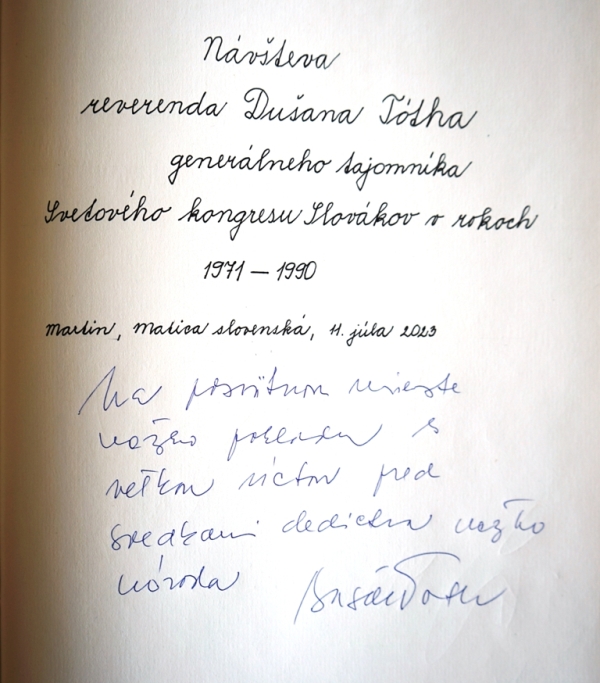 Návšteva
reverenda Dušana Tótha
generálneho tajomníka
Svetového kongresu Slovákov v rokoch
1971 – 1990
Martin, Matica slovenská, 11. júla 2023
Na posvätnom mieste
nášho pokladu s
veľkou úctou pred
svedkami dedictva nášho
národa Dušan Toth